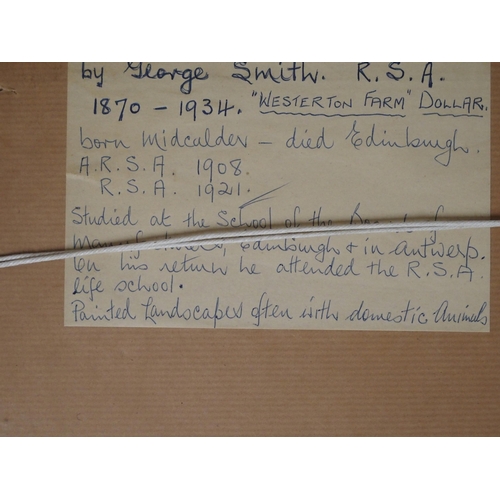 by George Smith. R.S.A.
1870 – 1934. "WESTERTON FARM" DOLLAR.
born Midcalder – died Edinburgh.
A.R.S.A. 1908.
R.S.A. 1921.
Studied at the School of the Board of
Manufacturers, Edinburgh & in Antwerp.
On his return he attended the R.S.A.
life school.
Painted Landscapes often with domestic Animals